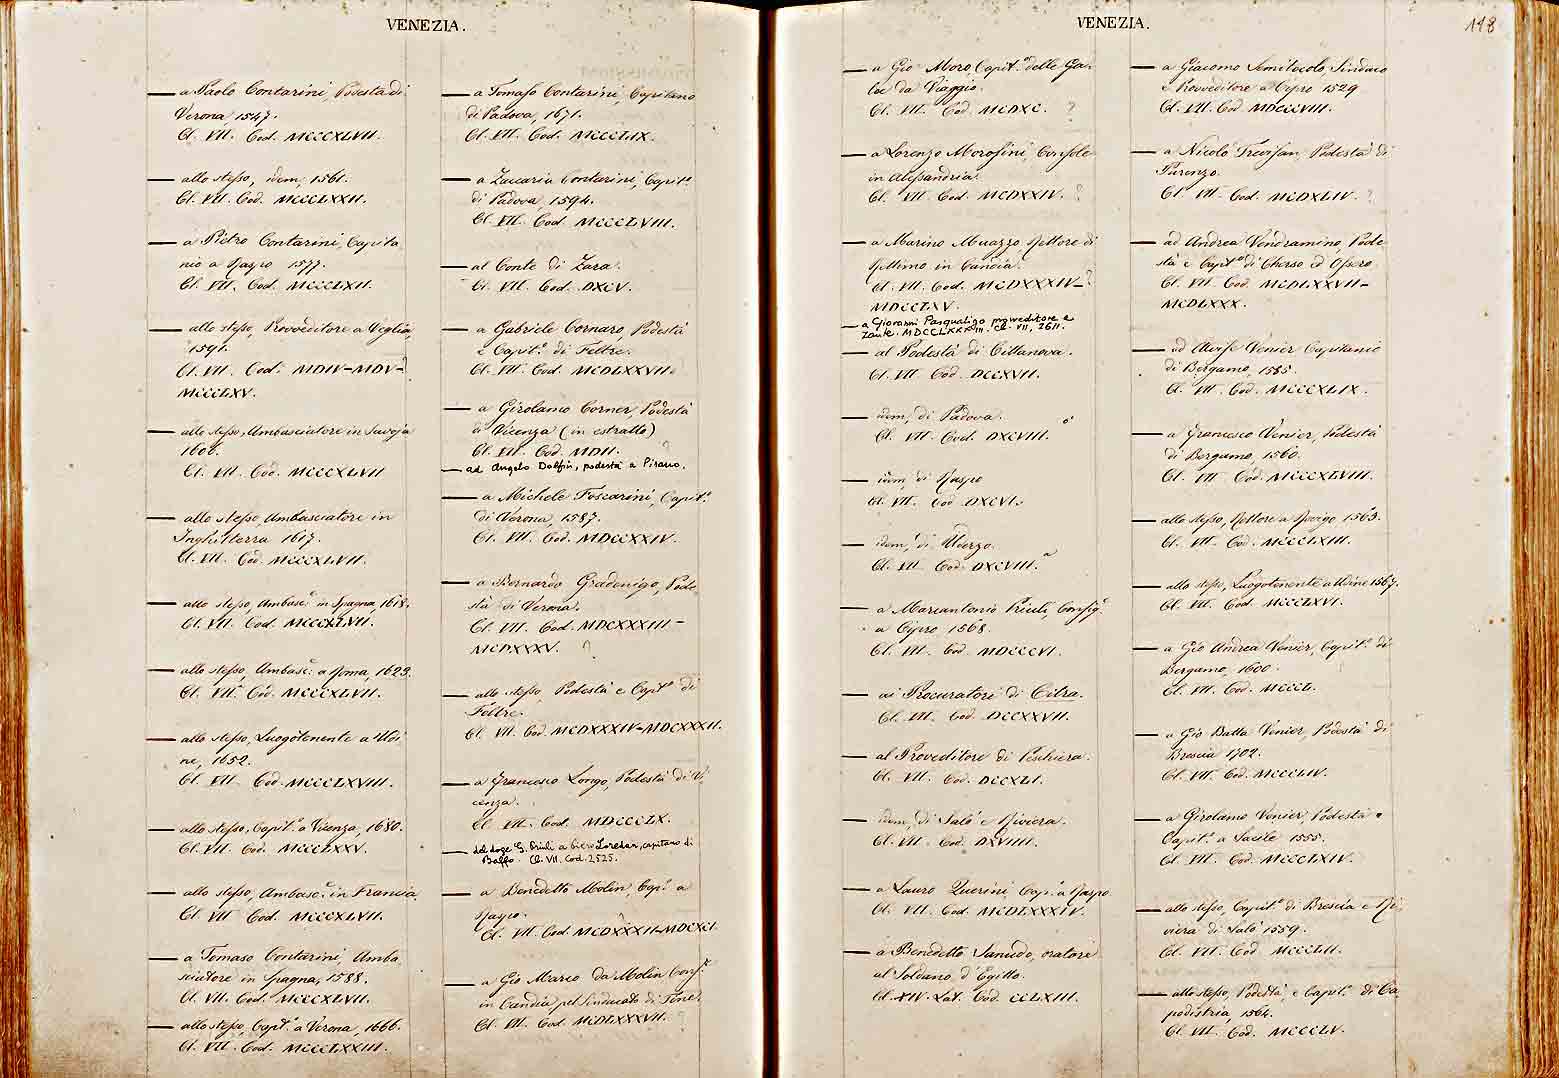 VENEZIA.
— a Paolo Contarini, Podestà di
Verona 1547.
Cl. VII. Cod. MCCCXLVII.
— allo stesso, idem, 1561.
Cl. VII. Cod. MCCCLXXII.
— a Pietro Contarini, Capita
nio a Raspo 1577.
Cl. VII. Cod. MCCCLXII.
— allo stesso, Provveditore a Veglia,
1591.
Cl. VII. Cod. MDIV-MDV-
MCCCLXV.
— allo stesso, Ambasciatore in Savoja
1606.
Cl. VII. Cod. MCCCXLVII
— allo stesso, Ambasciatore in
Inghilterra 1617.
Cl. VII. Cod. MCCCXLVII.
— allo stesso, Ambasc.e in Spagna, 1618.
Cl. VII. Cod. MCCCXLVII.
— allo stesso, Ambasc.e a Roma, 1623.
Cl. VII. Cod. MCCCXLVII.
— allo stesso, Luogotenente a Udi
ne, 1652.
Cl. VII. Cod. MCCCLXVIII.
— allo stesso, Capit.o a Vicenza, 1680.
Cl. VII. Cod. MCCCLXXV.
— allo stesso, Ambasc.e in Francia.
Cl. VII Cod. MCCCXLVII.
— a Tomaso Contarini, Amba
sciatore in Spagna, 1588.
Cl. VII. Cod. MCCCXLVII.
— allo stesso, Capit.o a Verona, 1666.
Cl. VII. Cod. MCCCLXXIII.
— a Tomaso Contarini, Capitano
di Padova, 1671.
Cl. VII. Cod. MCCCLIX.
— a Zaccaria Contarini, Capit.o
di Padova, 1594.
Cl. VII. Cod. MCCCLVIII.
— al Conte di Zara.
Cl. VII. Cod. DXCV.
— a Gabriele Cornaro, Podestà
e Capit.o di Feltre.
Cl. VII. Cod. MCDLXXVII.
— a Girolamo Corner, Podestà
a Vicenza (in estratto)
Cl. VII. Cod. MDII.
— ad Angelo Dolfin, podestà a Pirano.
— a Michele Foscarini, Capit.o
di Verona, 1587.
Cl. VII. Cod. MDCCXXIV.
— a Bernardo Gradenigo, Pode
stà di Verona.
Cl. VII. Cod. MDCXXXIII-
MCDXXXV. ?
— allo stesso, Podestà e Capt.o di
Feltre.
Cl. VII. Cod. MCDXXXIV-MDCXXXII.
— a Francesco Longo, Podestà di Vi
cenza.
Cl. VII. Cod. MDCCCLX.
— del doge G. Priuli a Piero Loredan, capitano di
Baffo. Cl. VII. Cod. 2525.
— a Benedetto Molin, Cap.o a
Raspo.
Cl. VII. Cod. MCDXXXII-MDCXCI.
— a Gio Marco da Molin Cons.e
in Candia pel Sindacato di Tine.
Cl. VII. Cod. MCDLXXXVII.
VENEZIA.
118
— a Gio Moro, Capit.o delle Ga-
lee da Viaggio.
Cl. VII. Cod. MCDXC. ?
— a Lorenzo Morosini, Console
in Alessandria.
Cl. VII. Cod. MCDXXIV. ?
— a Marino Muazzo, Rettore di
Rettimo in Candia.
Cl. VII. Cod. MCDXXXIV-?
MDCCLXV.
— a Giovanni Pasqualigo provveditore a
Zante. MDCCLXXXIII. Cl. VII, 2611.
— al Podestà di Cittanova.
Cl. VII. Cod. DCCXVII.
— idem, di Padova.
Cl. VII. Cod. DXCVIII.
— idem, di Raspo
Cl. VII. Cod DXCVI.
— idem, di Uderzo.
Cl. VII Cod. DXCVIII.a
— a Marcantonio Priuli, Consig.e
a Cipro 1568.
Cl. VII. Cod. MDCCCVI.
— ai Procuratori di Citra.
Cl. VII. Cod. DCCXXVII.
— al Proveditore di Peschiera.
Cl. VII. Cod. DCCXLI.
— idem, di Salò e Riviera.
Cl. VII. Cod. DXVIIII.
— a Lauro Querini, Cap.o a Raspo
Cl. VII. Cod. MCDLXXXIV.
— a Benedetto Sanudo, oratore
al Soldano d'Egitto.
Cl. XIV. Lat. Cod. CCLXIII.
— a Giacomo Semitecolo, Sindaco
e Provveditore a Cipro 1529
Cl. VII. Cod MDCCCVIII.
— a Nicolò Trevisan, Podestà di
Parenzo.
Cl VII. Cod. MCDXLIV. ?
— ad Andrea Vendramino, Pode-
stà e Capt.o di Cherso ed Ossero
Cl. VII. Cod. MCDLXXVII-
MCDLXXX.
— ad Alvise Venier Capitanio
di Bergamo, 1585.
Cl. VII. Cod. MCCCXLIX.
— a Francesco Venier, Podestà
di Bergamo, 1560.
Cl. VII. Cod. MCCCXLVIII.
— allo stesso, Rettore a Rovigo 1563.
Cl. VII. Cod. MCCCLXIII.
— allo stesso, Luogotenente a Udine 1567.
Cl. VII. Cod MCCCLXVI.
— a Gio Andrea Venier, Capit.o di
Bergamo, 1600.
Cl. VII. Cod. MCCCL.
— a Gio Batta Venier, Podestà di
Brescia 1702.
Cl. VII. Cod. MCCCLIV.
— a Girolamo Venier, Podestà e
Capit.o a Sacile 1555.
Cl. VII. Cod. MCCCLXIV.
— allo stesso, Capit.o di Brescia e Ri-
viera di Salò 1559.
Cl. VII. Cod MCCCLII.
— allo stesso, Podestà e Capit.o di Ca
podistria, 1564.
Cl. VII. Cod. MCCCLV.